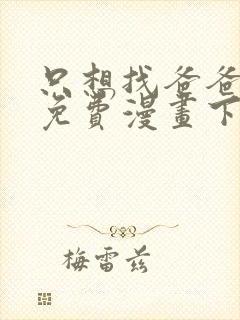 只想找爸爸
免費漫畫下
梅雷兹